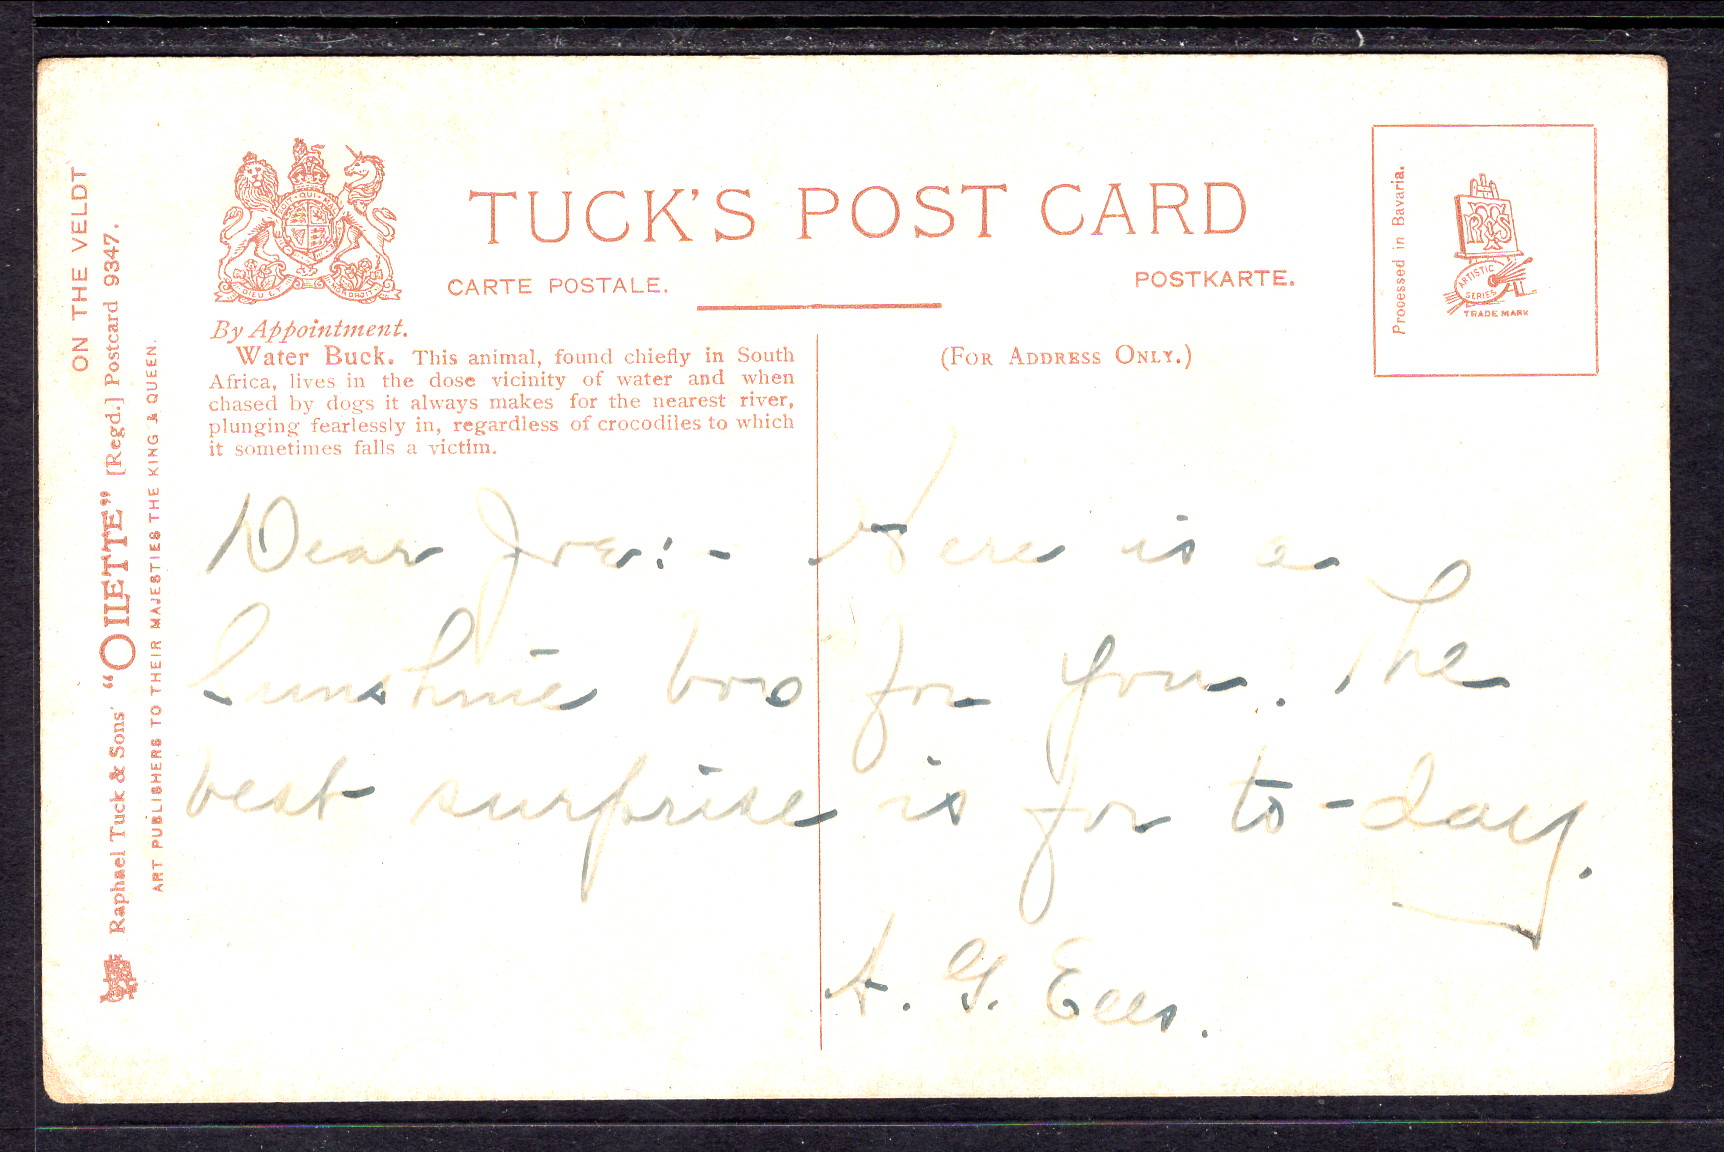 ON THE VELDT
Raphael Tuck & Sons' "OILETTE" [Regd.] Postcard 9347.
ART PUBLISHERS TO THEIR MAJESTIES THE KING & QUEEN.
DIEU ET MON DROIT
TUCK'S POST CARD
CARTE POSTALE.
POSTKARTE.
By Appointment.
Water Buck. This animal, found chiefly in South
Africa, lives in the dose vicinity of water and when
chased by dogs it always makes for the nearest river,
plunging fearlessly in, regardless of crocodiles to which
it sometimes falls a victim.
(FOR ADDRESS ONLY.)
Processed in Bavaria.
ARTISTIC
SERIES
TRADE MARK
Dear Joe:- Here is a
Sunshine box for you. The
best surprise is for to-day.
A. G. Eells.